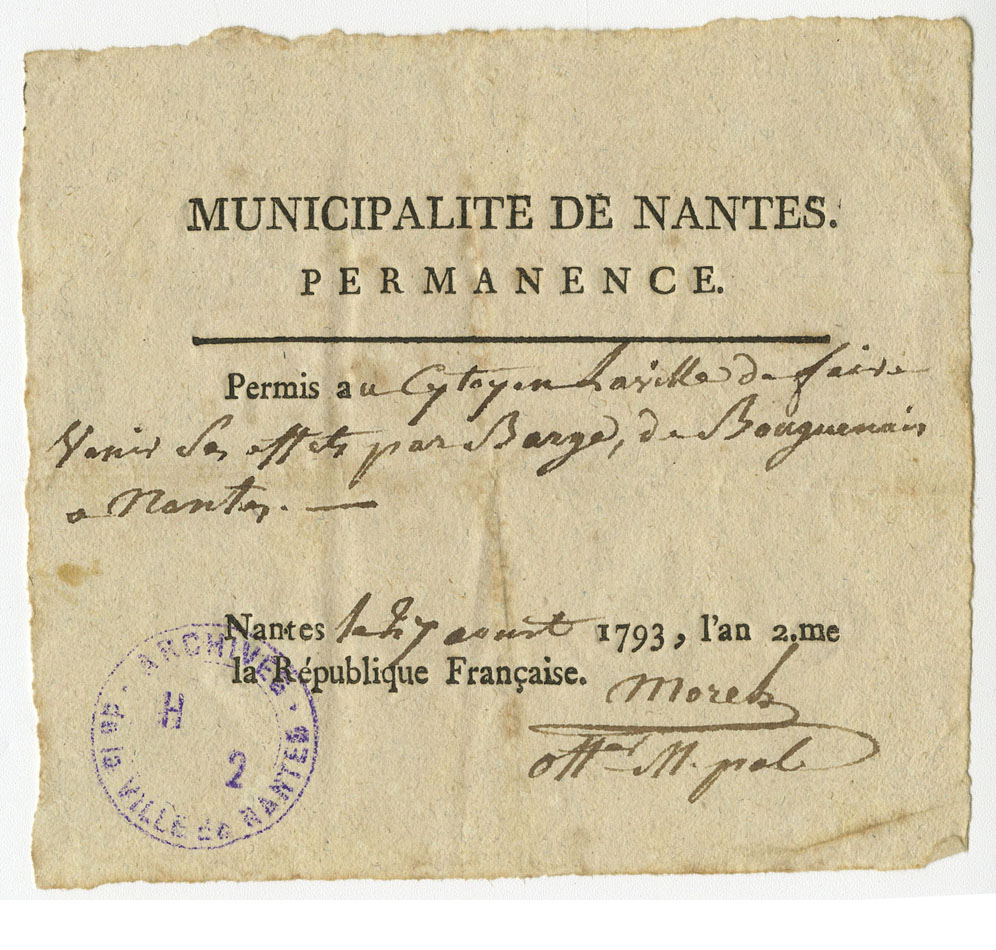 MUNICIPALITE DE NANTES.
PERMANENCE.
Permis au Cytoyen Laville de faire
Venir Ses effets par Barge, de Bouguenais
a Nantes. —
Nantes le 27 aoust 1793, l'an 2.me
la République Française.
Morel
Offer M. pal
ARCHIVES de la VILLE de NANTES
H
2